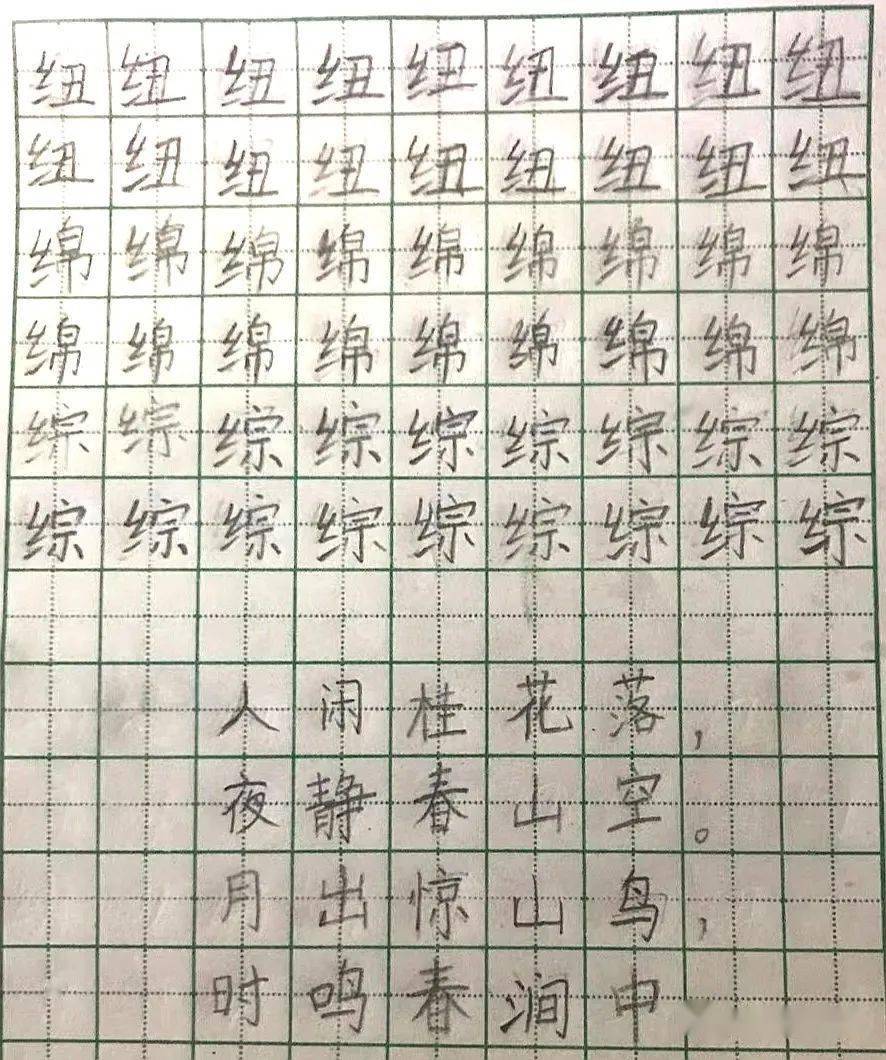 纽纽纽纽纽纽纽纽纽
纽纽纽纽纽纽纽纽纽
绵绵绵绵绵绵绵绵绵
绵绵绵绵绵绵绵绵绵
综综综综综综综综综
综综综综综综综综综
人闲桂花落，
夜静春山空。
月出惊山鸟，
时鸣春涧中